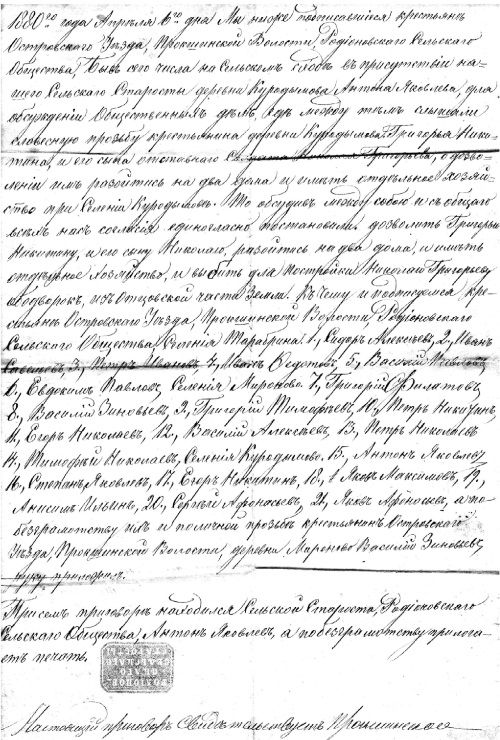 1880го года Апреля 6го дня Мы ниже подписавшіеся крестьяне
Островскаго Уѣзда, Прокшинской Волости, Родіоновскаго Сельскаго
Общества, бывъ сего числа на Сельскомъ сходѣ въ присутствіи на-
шего Сельскаго Старосты деревни Куродымова Антона Яковлева, для
обсужденія Общественныхъ дѣлъ, гдѣ между тѣмъ слышали
словесную прозьбу крестьянина деревни Куродымова Григорья Ники-
тина, и его сына отставнаго Григорьева, о дозво-
леніи имъ разойтись на два дома и имѣть отдѣльное хозяй-
ство при Селеніи Куродымовѣ. То обсудивъ между собою и съ общаго
всѣхъ насъ согласія единогласно постановили: дозволить Григорью
Никитину, и его сыну Николаю, разойтись на два дома, и имѣть
отдѣльное хозяйство, и выбить для постройки Николаю Григорьеву
подворокъ, изъ Отцовской части Земли. Къ чему и подписуемся кре-
стьяне Островскаго Уѣзда, Прокшинской Волости Родіоновскаго
Сельскаго Общества, Селенія Тарабрина: 1, Сидоръ Алексѣевъ, 2, Иванъ
3, Петръ Ивановъ, 4, Иванъ Федотовъ, 5, Василій
6, Евдокимъ Павловъ, Селенія Мироново. 7, Григорій Филатовъ,
8, Василій Зиновьевъ, 9, Григорій Тимофѣевъ, 10, Петръ Никитинъ,
11, Егоръ Николаевъ, 12, Василій Алексѣевъ, 13, Петръ Николаевъ
14, Тимофѣй Николаевъ, Селенія Куродымово, 15, Антонъ Яковлевъ
16, Степанъ Яковлевъ, 17, Егоръ Никитинъ, 18, Яковъ Максимовъ, 19,
Анисимъ Ильинъ, 20, Сергѣй Афонасьевъ, 21, Яковъ Афонасьевъ, а по
безграмотству ихъ и по личной прозьбѣ крестьянинъ Островскаго
Уѣзда, Прокшинской Волости, деревни Мироново Василій Зиновьевъ,
руку приложилъ.
При семъ приговорѣ находился Сельской Староста, Родіоновскаго
Сельскаго Общества, Антонъ Яковлевъ, а по безграмотству прилога-
етъ печать.
РОДІОНОВ
СКАГО
СЕЛЬСКАГО
СТАРОСТЫ
Настоящій приговоръ Свидѣтельствуетъ Прокшинское